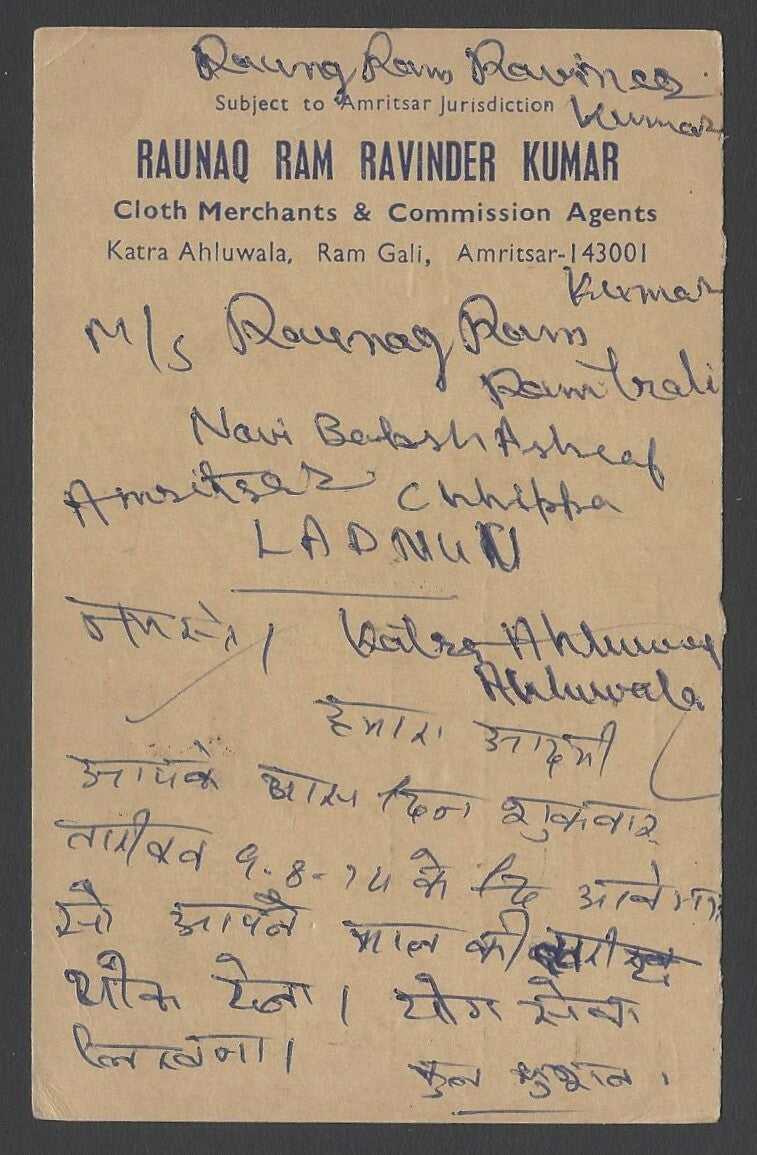 Raunq Ram Ravinder
Subject to Amritsar Jurisdiction
Kumar
RAUNAQ RAM RAVINDER KUMAR
Cloth Merchants & Commission Agents
Katra Ahluwala, Ram Gali, Amritsar-143001
Kumar
M/S Raunaq Ram
Ram Gali
Navi Baksh Ashraf
Amritsar Chhippa
LADNUN
नमस्ते। Katra Ahluwa
Ahluwala
हमारा आदमी
आपके पास दिन शुक्रवार
तारीख 9-8-74 के आवेगा
सो आपने माल की
देना। योग सेवा
लिखना।
कुल कुशल।